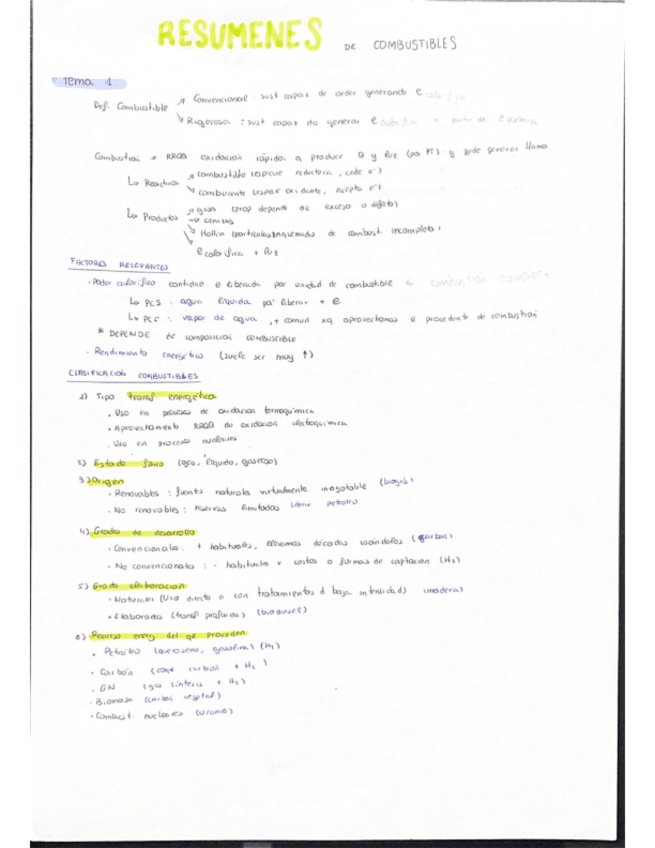 RESUMENES DE COMBUSTIBLES
Tema 1
Def. Combustible
Convencional: sust capaz de arder generando e calorífica
Rigorosa: sust capaz de generar e calorífica a partir de e química
Combustión → RRQQ oxidación rápida q produce Q y luz (por ↑T) y puede generar llama
↳ Reactivos
combustible (especie reductora, cede e⁻)
comburente (especie oxidante, acepta e⁻)
↳ Productos
gases (prop depende de exceso o defecto)
cenizas
Hollín (partículas inquemadas de combust incompleta)
e calorífica + luz
FACTORES RELEVANTES
· Poder calorífico cantidad e liberada por unidad de combustible combustión completa
↳ PCS: agua líquida pa' liberar + e
↳ PCI: vapor de agua, + común xq aprovechamos e procedente de combustión
* DEPENDE de composición COMBUSTIBLE
· Rendimiento energético (suele ser muy ↑)
CLASIFICACIÓN COMBUSTIBLES
1) Tipo transf. energética
· Uso en procesos de oxidación termoquímica
· Aprovechamiento RRQQ de oxidación electroquímica
· Uso en procesos nucleares
2) Estado físico (gas, líquido, gaseoso)
3) Origen
· Renovables: fuente naturales virtualmente inagotable (biogás)
· No renovables: reservas limitadas (deriv petróleo
4) Grados de desarrollo
· Convencionales: + habituales, llevamos décadas usándolos (carbón)
· No convencionales: - habituales x costos o formas de captación (H₂)
5) Grado elaboración
· Naturales (Uso directo o con tratamientos d baja intensidad) (madera)
· Elaborados (transf. profunda) (biodiesel)
6) Recurso energ del qe proceden
· Petróleo (queroseno, gasolina) (H₂)
· Carbón (coque carbón + H₂)
· GN (gas síntesis + H₂)
· Biomasa (carbón vegetal)
· Combust. nucleares (uranio)